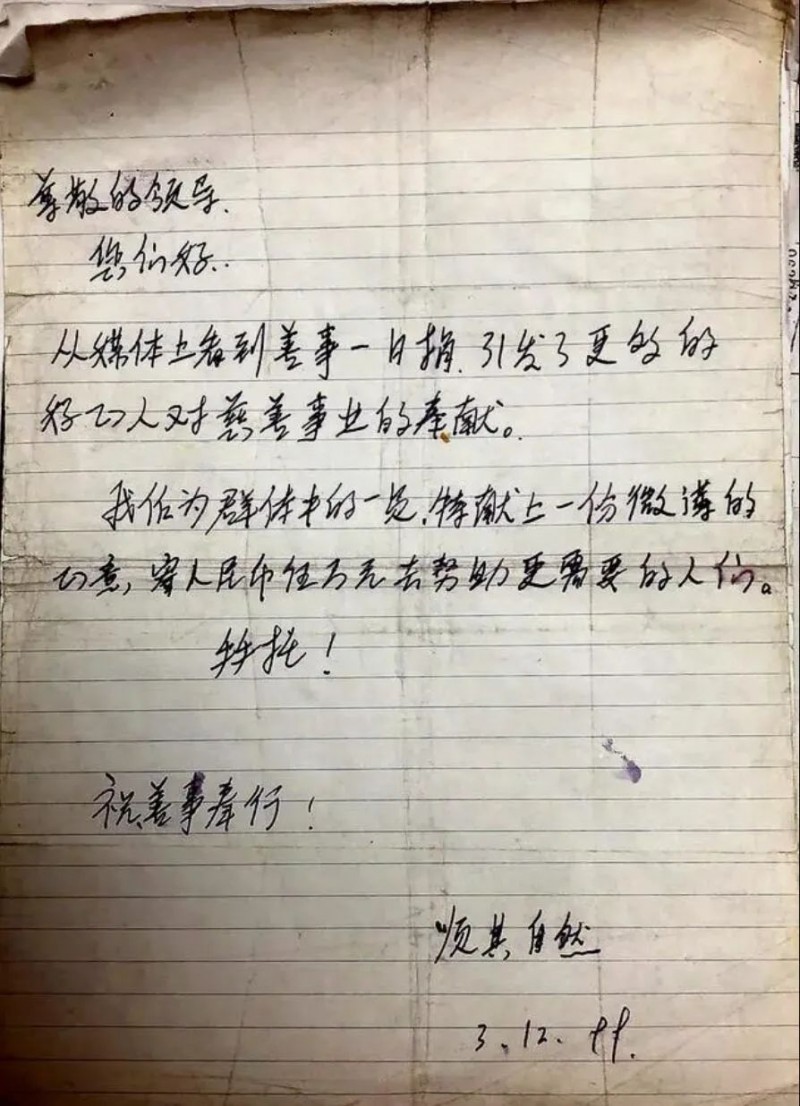 尊敬的领导、
您们好..
从媒体上看到善事一日捐、引发了更多的
好心人对慈善事业的奉献。
我作为群体中的一员、特献上一份微薄的
心意，寄人民币伍万元去帮助更需要的人们。
拜托！
祝善事奉行！
顺其自然
3.12.99.